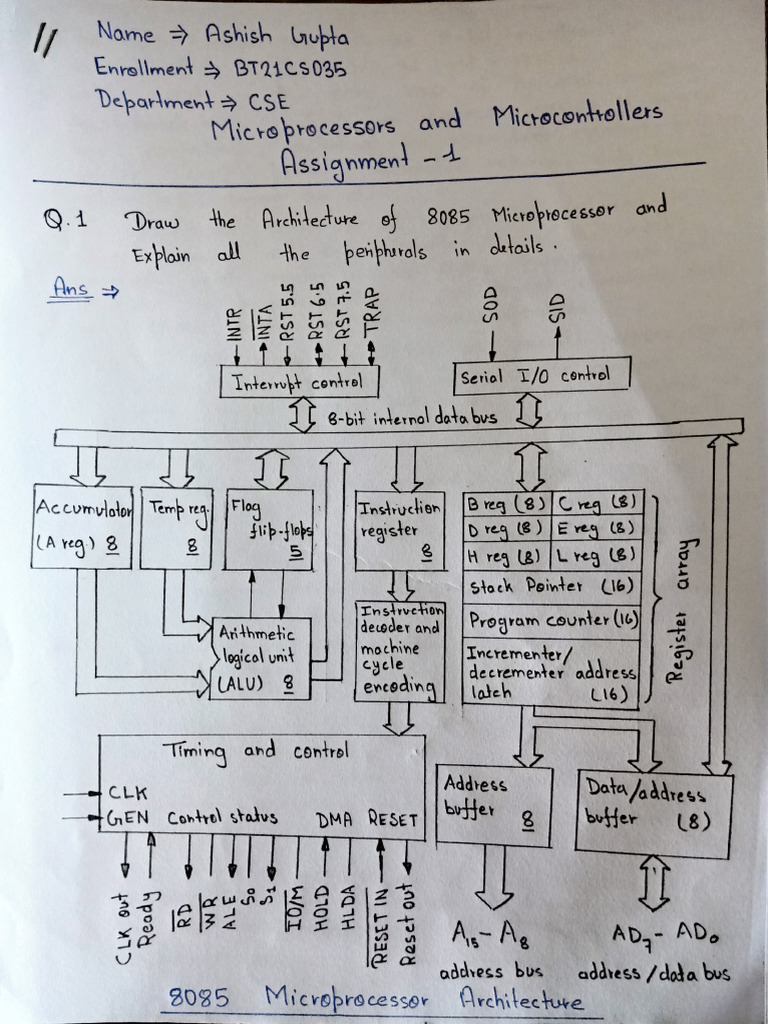 11
Name ⇒ Ashish Gupta
Enrollment ⇒ BT21CS035
Department ⇒ CSE
Microprocessors and Microcontrollers
Assignment - 1
Q.1 Draw the Architecture of 8085 Microprocessor and
Explain all the peripherals in details.
Ans ⇒
INTR
INTA
RST 5.5
RST 6.5
RST 7.5
TRAP
SOD
SID
Interrupt control
Serial I/O control
8-bit internal data bus
Accumulator
(A reg.) 8
Temp reg.
8
Flag
flip-flops
5
Instruction
register
8
B reg (8) C reg (8)
D reg (8) E reg (8)
H reg (8) L reg (8)
Stack Pointer (16)
Program counter (16)
Incrementer/
decrementer address
latch (16)
Register array
Arithmetic
logical unit
(ALU) 8
Instruction
decoder and
machine
cycle
encoding
Timing and control
CLK
GEN Control status DMA RESET
Address
buffer 8
Data/address
buffer (8)
CLK out
Ready
RD
WR
ALE
S0
S1
IO/M
HOLD
HLDA
RESET IN
Reset out
A15 - A8
address bus
AD7 - AD0
address/data bus
8085 Microprocessor Architecture